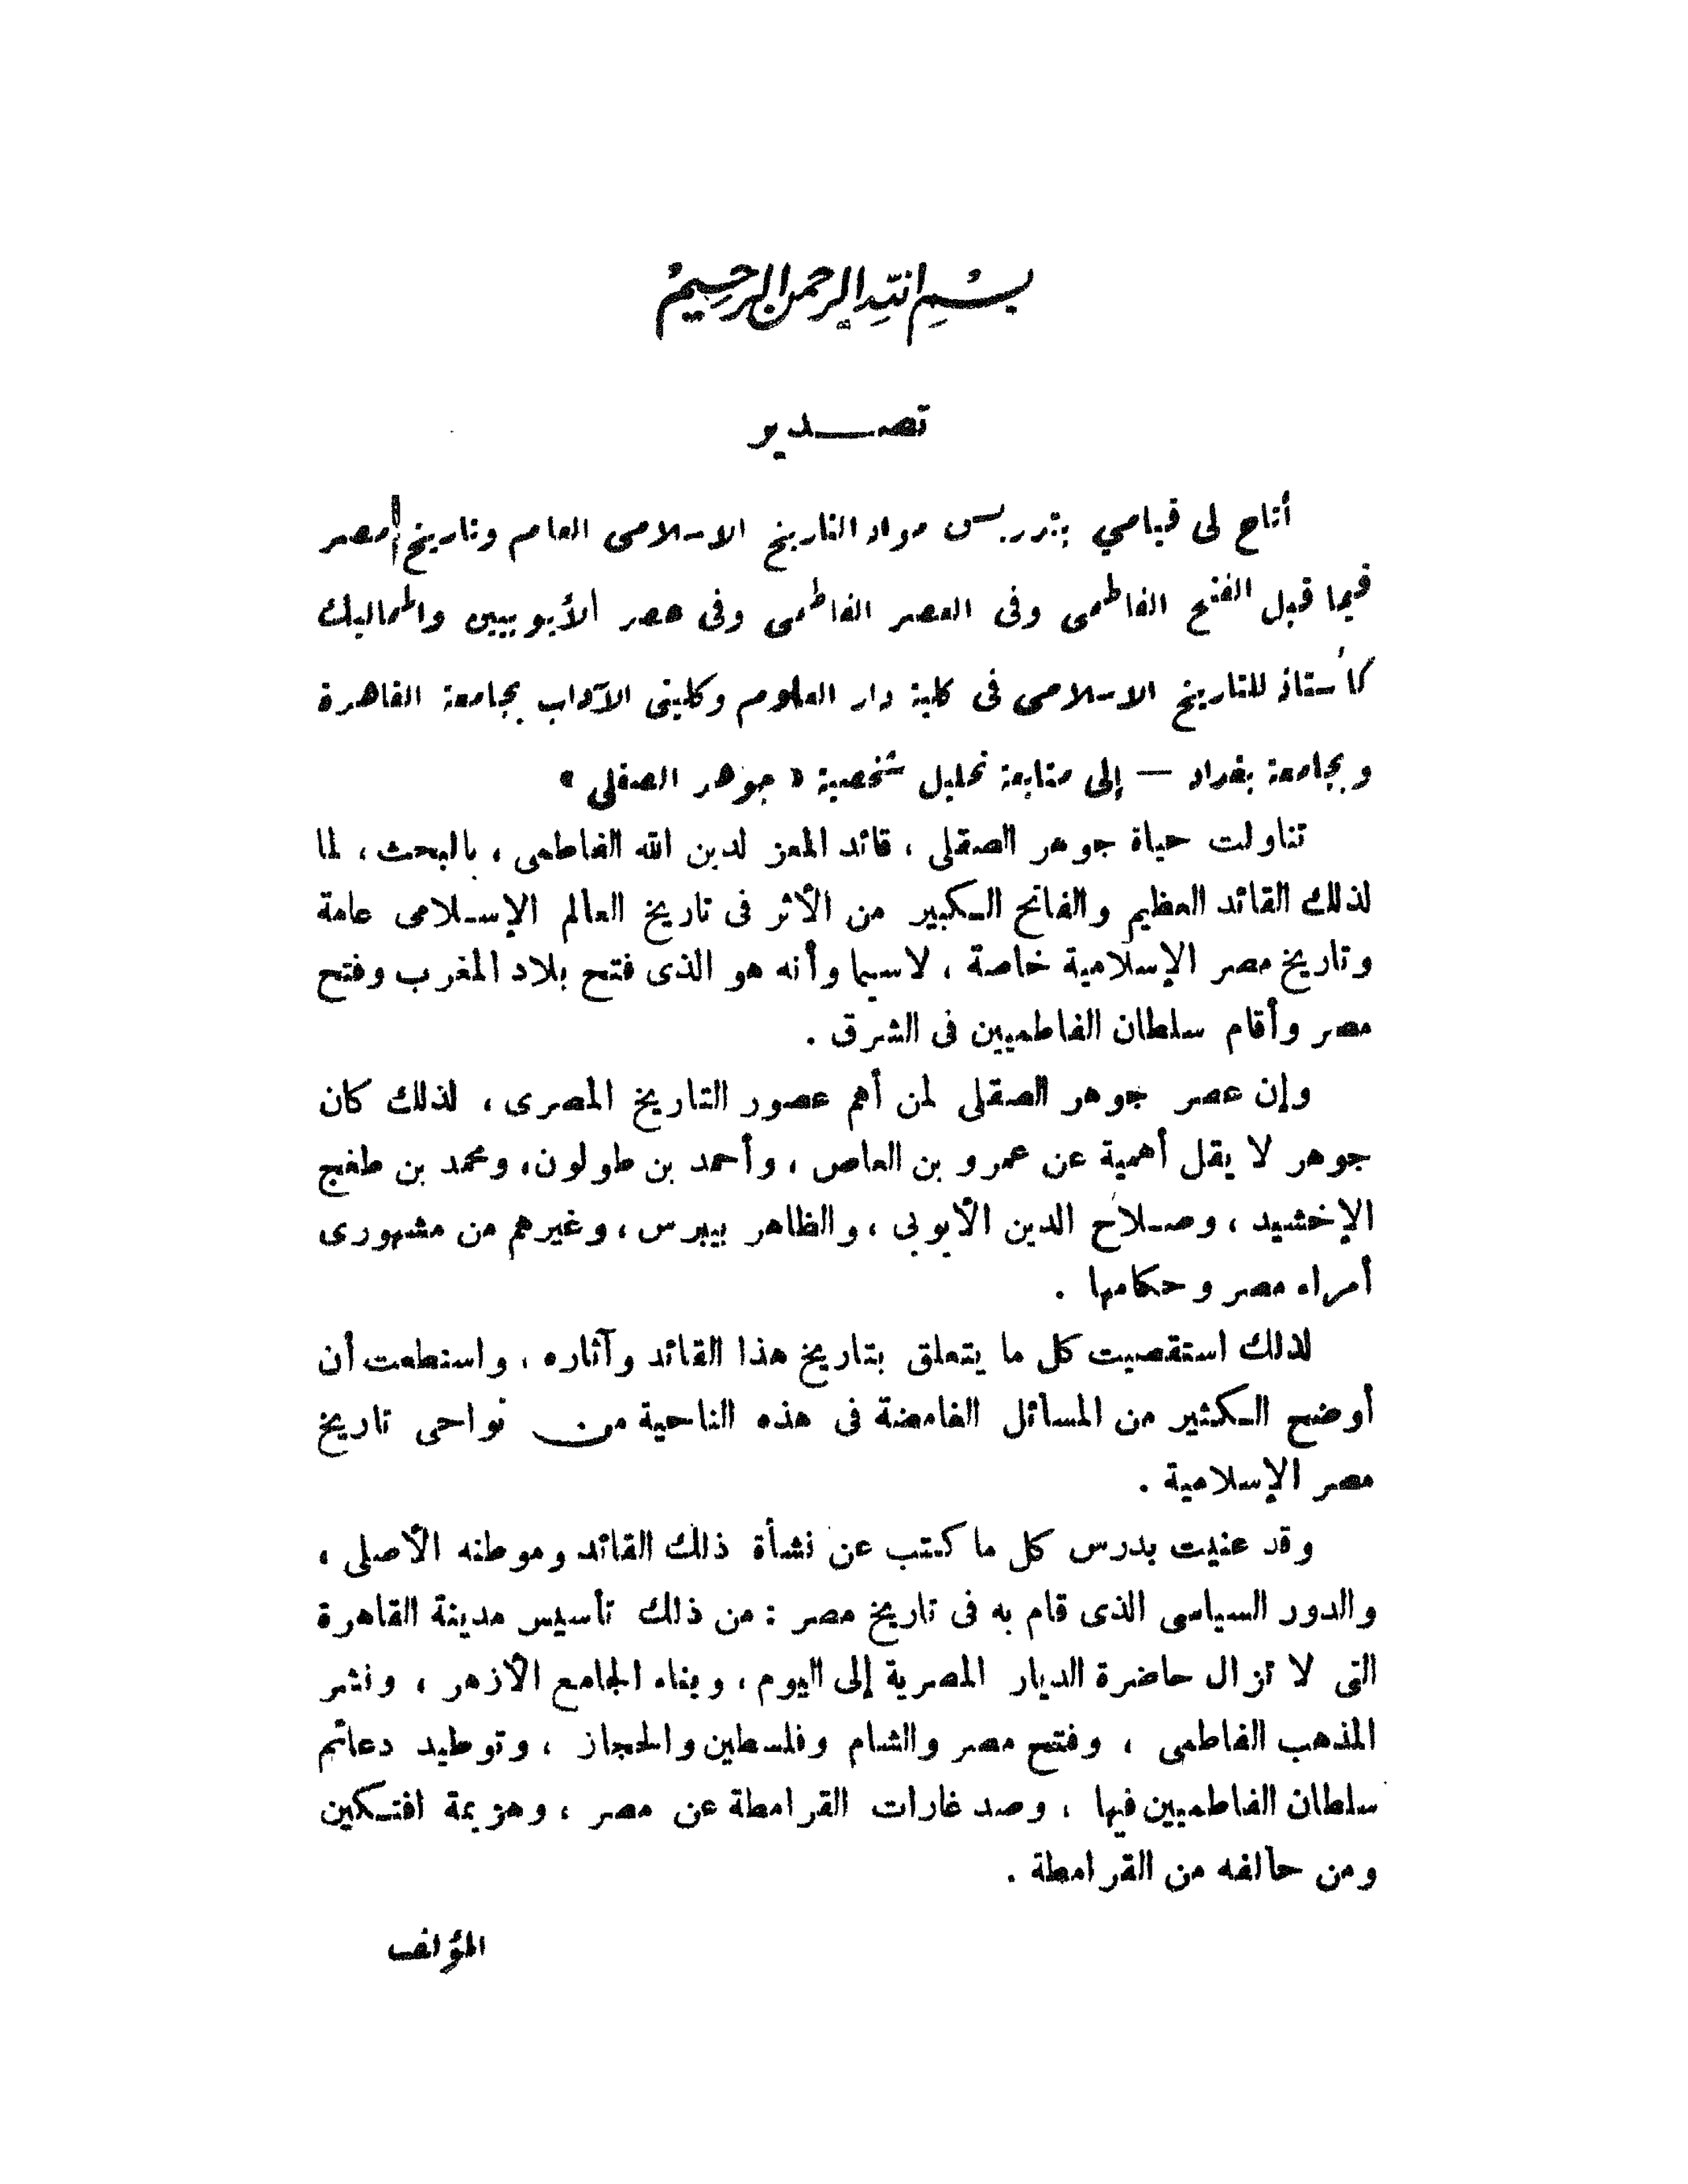 بسم الله الرحمن الرحيم
تصدير
أتاح لى قيامي بتدريس مواد التاريخ الاسلامى العام وتاريخ مصر
فيما قبل الفتح الفاطمى وفى العصر الفاطمى وفى عصر الأيوبيين والمماليك
كأستاذ للتاريخ الاسلامى فى كلية دار العلوم وكليتى الآداب بجامعة القاهرة
وبجامعة بغداد — إلى متابعة تحليل شخصية « جوهر الصقلى »
تناولت حياة جوهر الصقلى ، قائد المعز لدين الله الفاطمى ، بالبحث ، لما
لذلك القائد العظيم والفاتح الكبير من الأثر فى تاريخ العالم الإسلامى عامة
وتاريخ مصر الإسلامية خاصة ، لاسيما وأنه هو الذى فتح بلاد المغرب وفتح
مصر وأقام سلطان الفاطميين فى الشرق .
وإن عصر جوهر الصقلى لمن أهم عصور التاريخ المصرى ، لذلك كان
جوهر لا يقل أهمية عن عمرو بن العاص ، وأحمد بن طولون ، ومحمد بن طغج
الإخشيد ، وصلاح الدين الأيوبى ، والظاهر بيبرس ، وغيرهم من مشهورى
أمراء مصر وحكامها .
لذلك استقصيت كل ما يتعلق بتاريخ هذا القائد وآثاره ، واستطعت أن
أوضح الكثير من المسائل الغامضة فى هذه الناحية من نواحى تاريخ
مصر الإسلامية .
وقد عنيت بدرس كل ما كتب عن نشأة ذلك القائد وموطنه الأصلى ،
والدور السياسى الذى قام به فى تاريخ مصر : من ذلك تأسيس مدينة القاهرة
التى لا تزال حاضرة الديار المصرية إلى اليوم ، وبناء الجامع الأزهر ، ونشر
المذهب الفاطمى ، وفتح مصر والشام وفلسطين والحجاز ، وتوطيد دعائم
سلطان الفاطميين فيها ، وصد غارات القرامطة عن مصر ، وهزيمة افتكين
ومن حالفه من القرامطة .
المؤلف